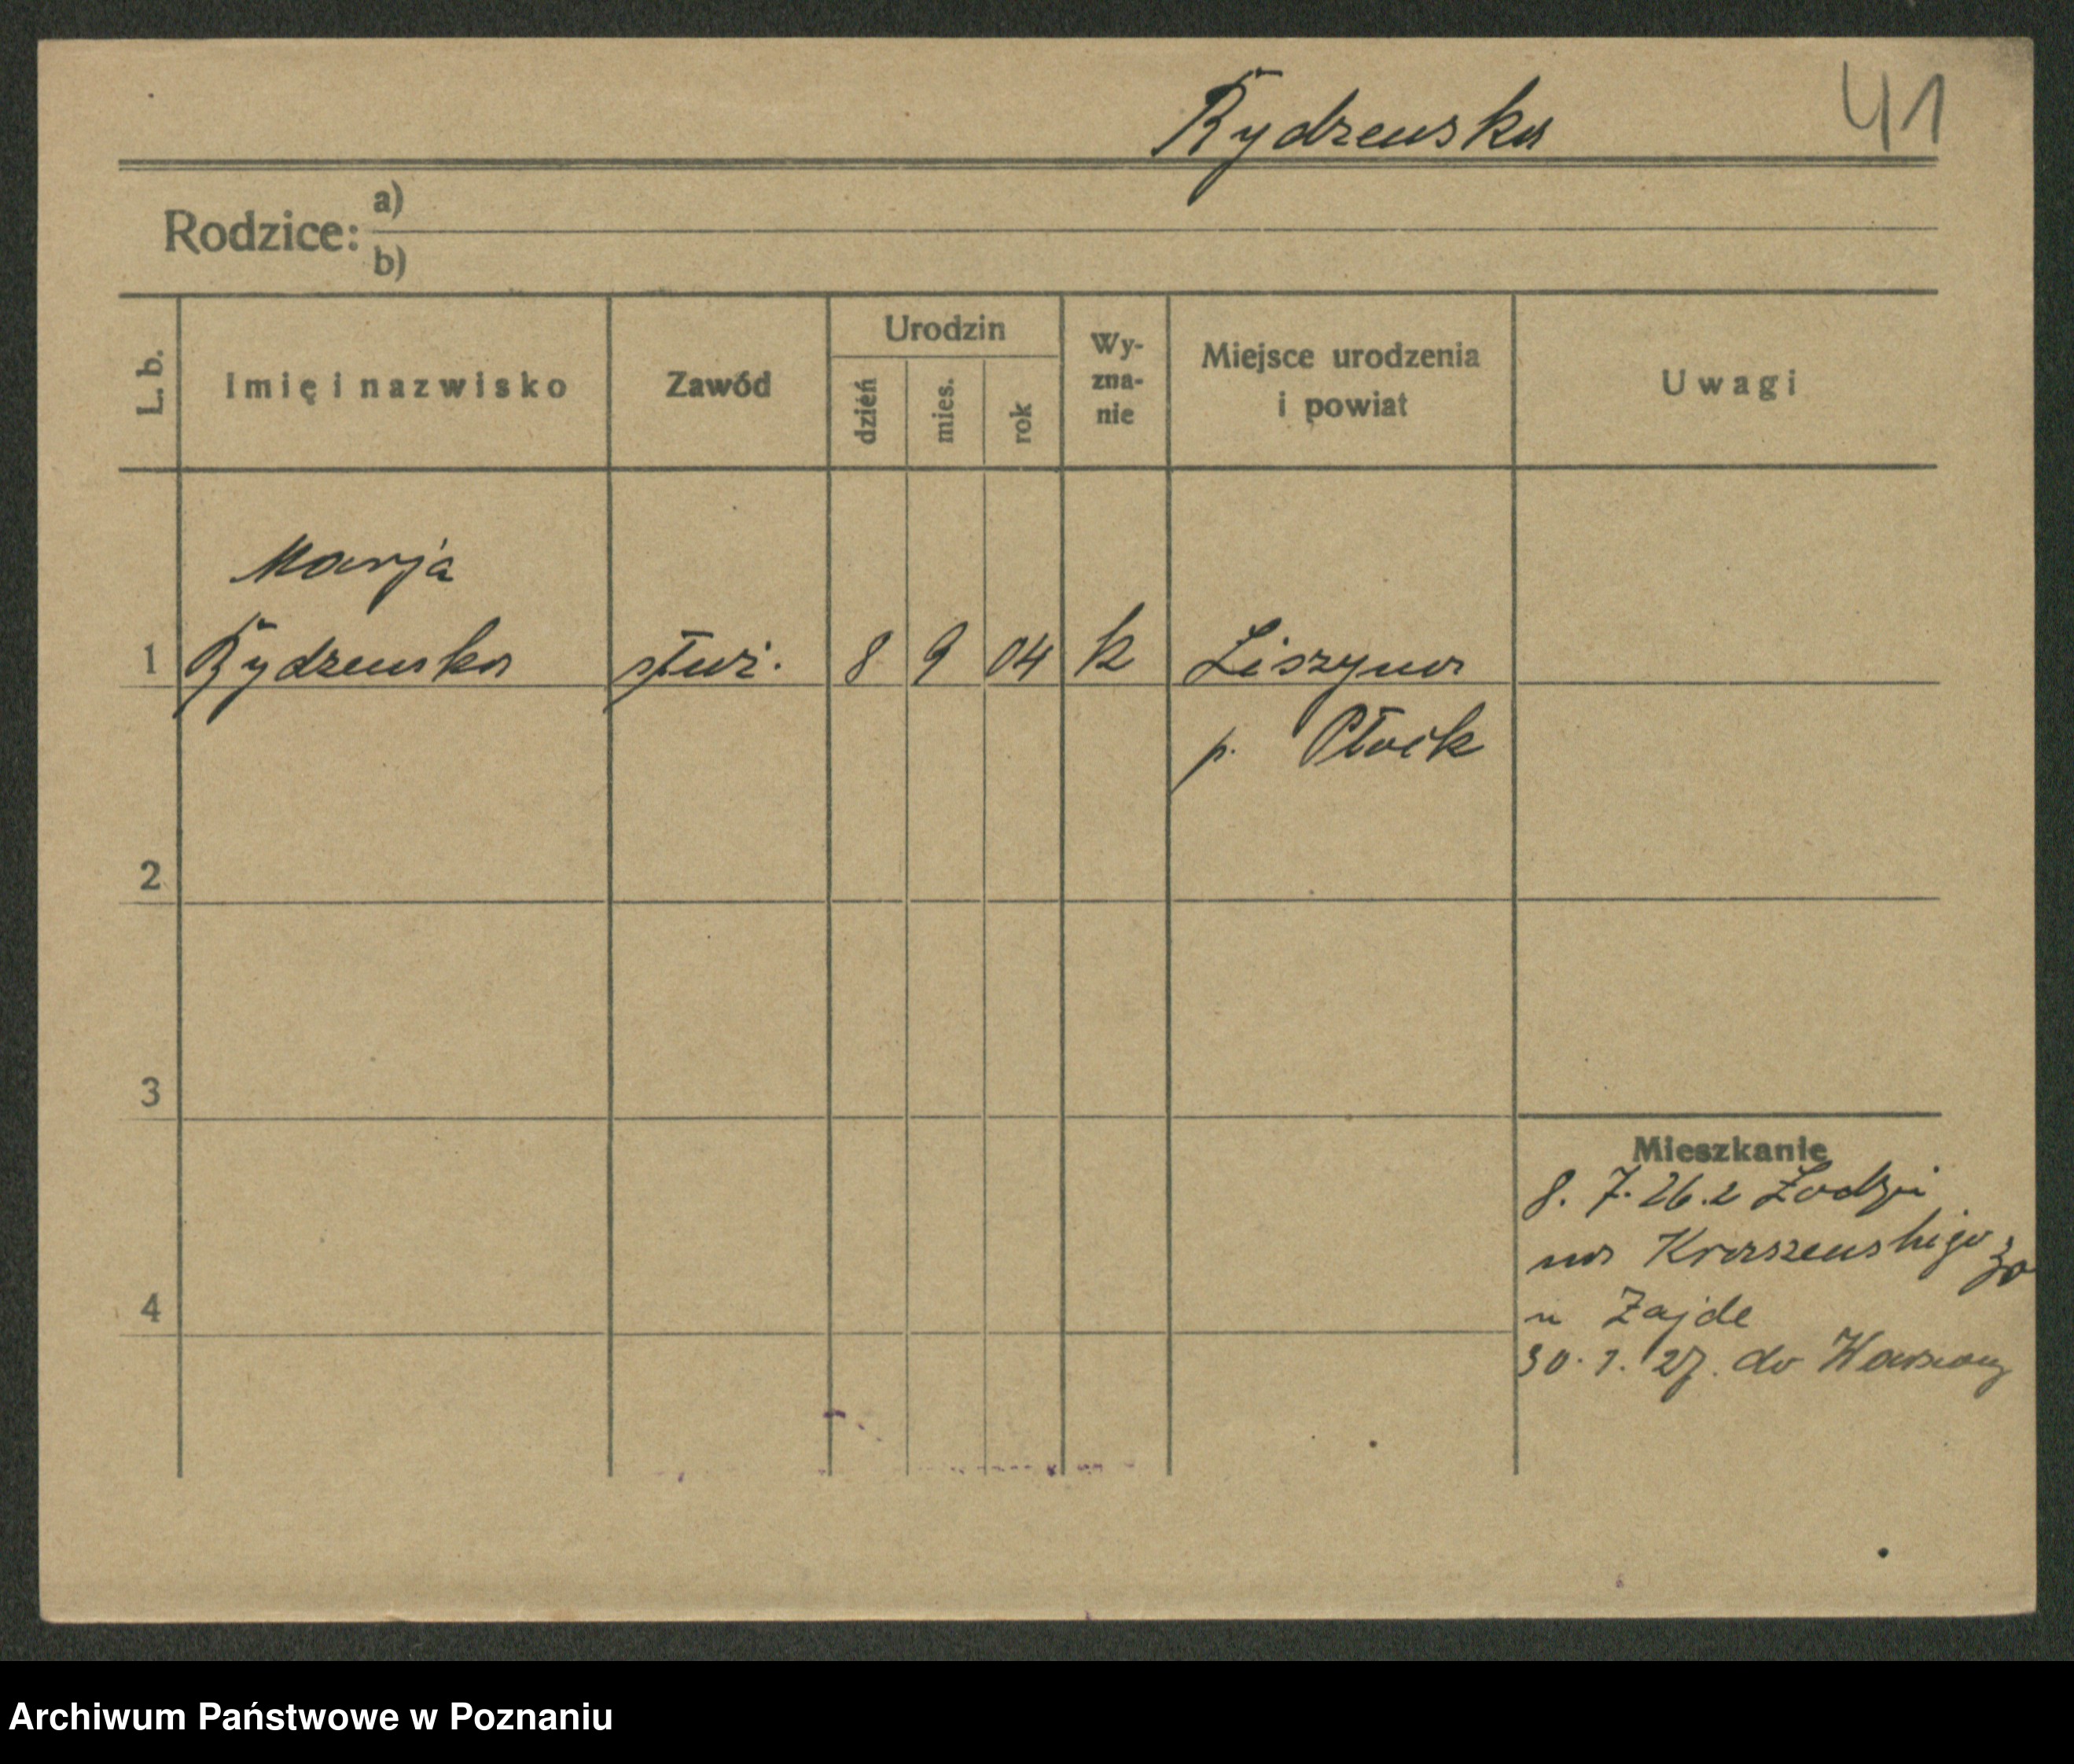 Rydzewska 41
Rodzice: a)
b)
L. b. Imię i nazwisko Zawód Urodzin dzień mies. rok Wy-zna-nie Miejsce urodzenia i powiat Uwagi
Marja
1 Rydzewska służ. 8 9 04 k Liszyno
p. Płock
2
3
Mieszkanie
8. 7. 26. z Łodzi
na Kraszewskiego 30
4
u Zajde
30. 1. 27. do Warszawy
Archiwum Państwowe w Poznaniu